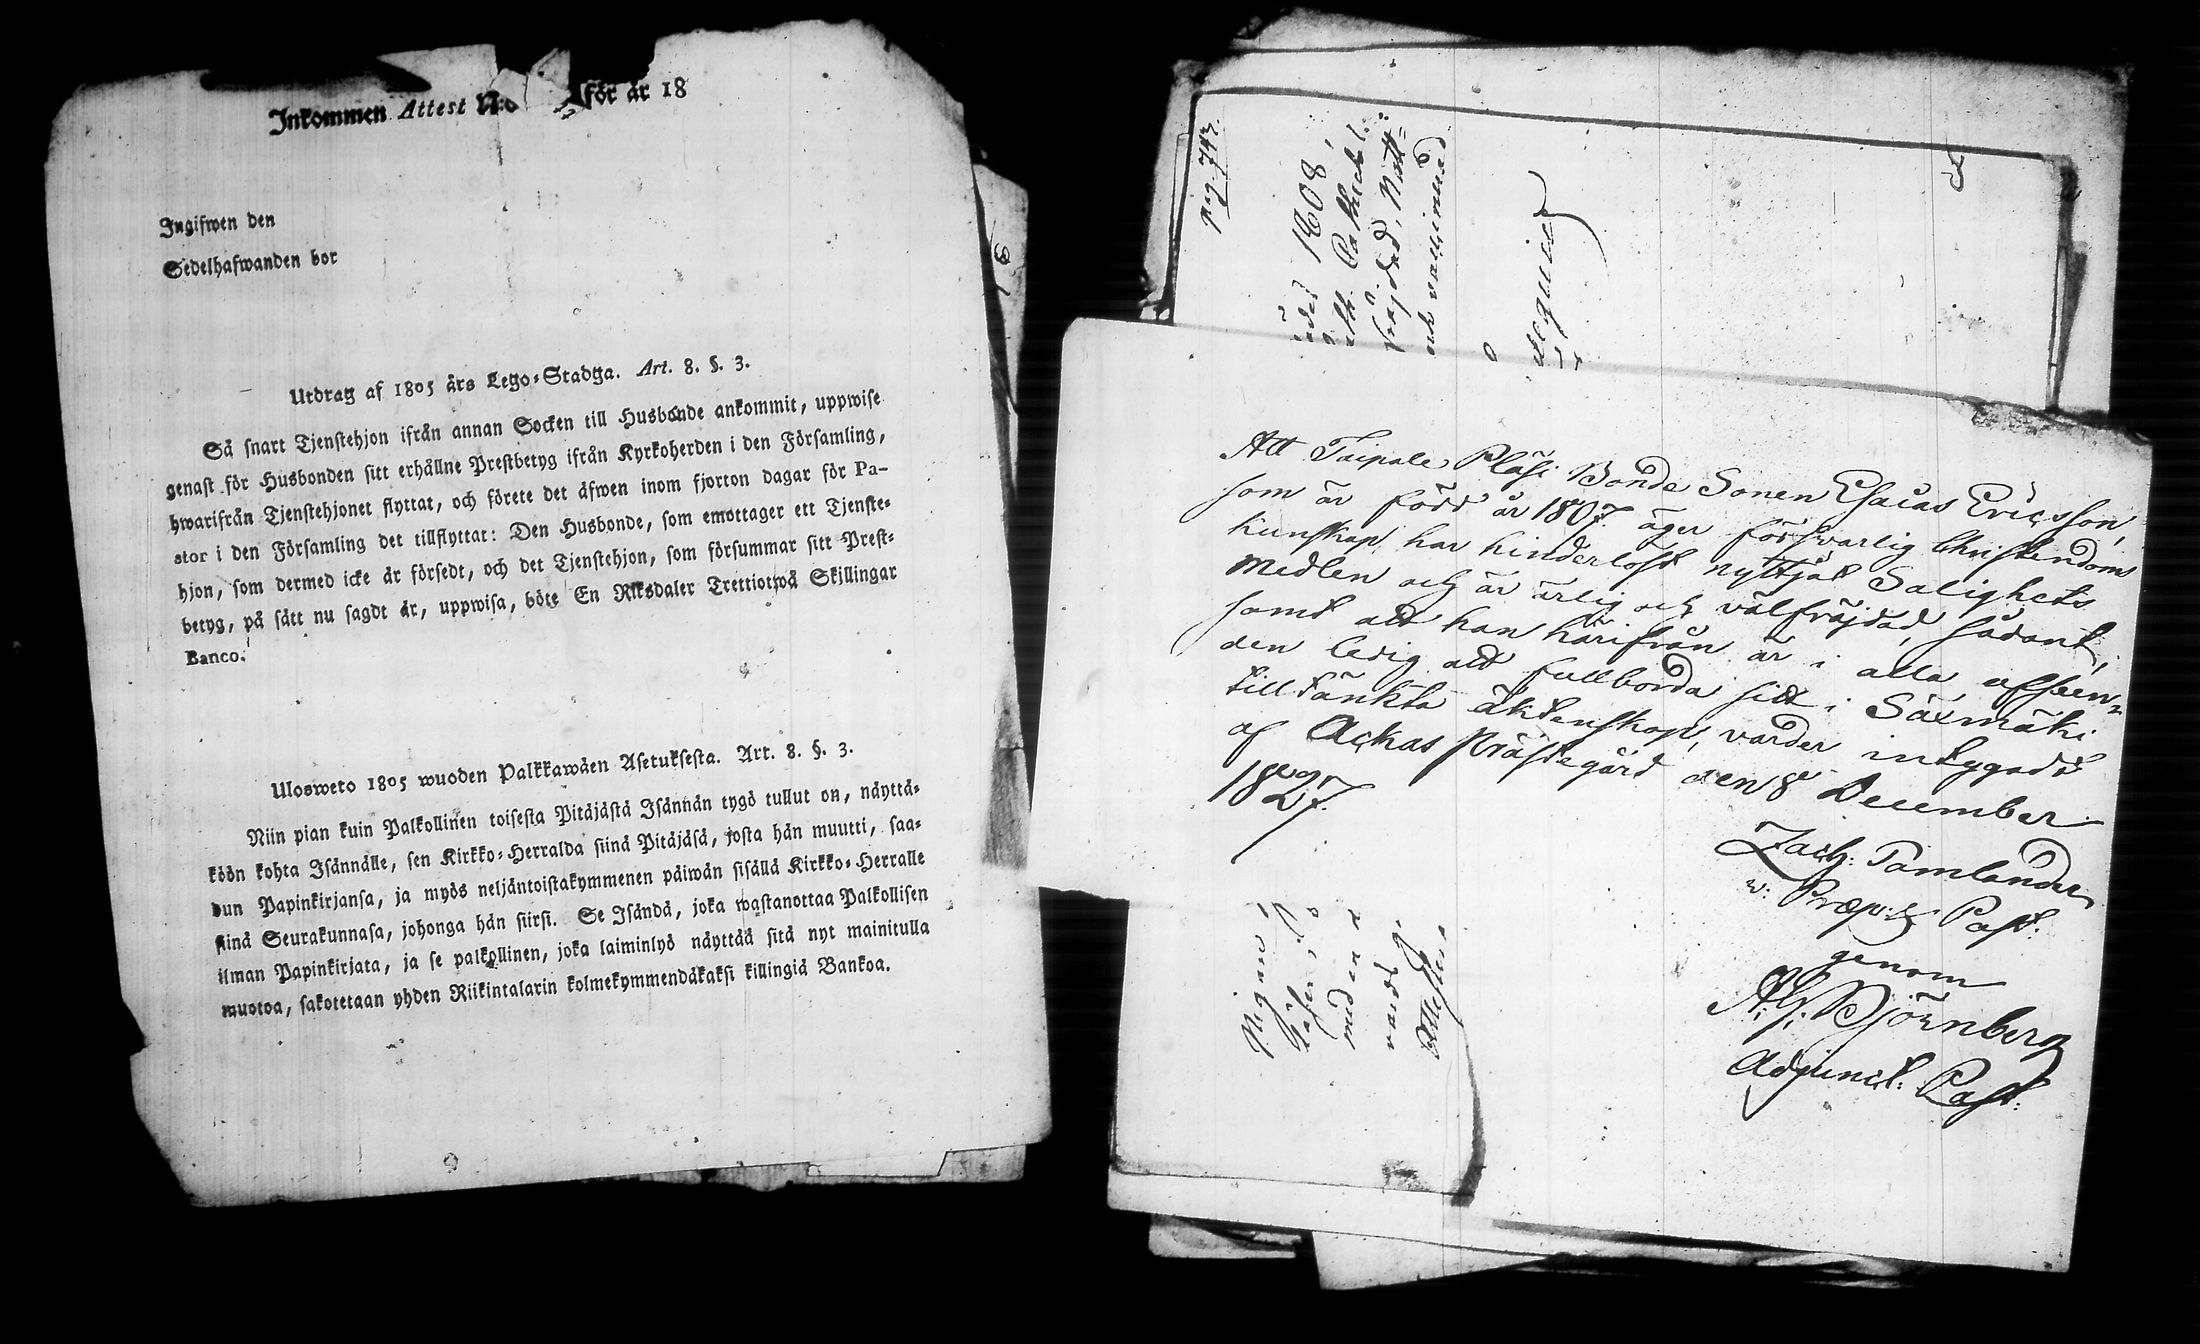 Inkommen Attest N:o för år 18
Ingifwen den
Sedelhafwanden bor
Utdrag af 1805 års Lego-Stadga. Art. 8. §. 3.
Så snart Tjenstehjon ifrån annan Socken till Husbonde ankommit, uppwise
genast för Husbonden sitt erhållne Prestbetyg ifrån Kyrkoherden i den Församling,
hwarifrån Tjenstehjonet flyttat, och förete det äfwen inom fjorton dagar för Pa-
stor i den Församling det tillflyttat: Den Husbonde, som emottager ett Tjenste-
hjon, som dermed icke är försedt, och det Tjenstehjon, som försummar sitt Prest-
betyg, på sätt nu sagdt är, uppwisa, böte En Riksdaler Trettiotwå Skillingar
Banco.
Ulosweto 1805 wuoden Palkkawäen Asetuksesta. Art. 8. §. 3.
Niin pian kuin Palkollinen toisesta Pitäjästä Isännän tygö tullut on, näyttä-
köön kohta Isännälle, sen Kirkko-Herralda siinä Pitäjäsä, josta hän muutti, saa-
dun Papinkirjansa, ja myös neljäntoistakymmenen päiwän sisällä Kirkko-Herralle
siinä Seurakunnasa, johonga hän siirsi. Se Isändä, joka wastanottaa Palkollisen
ilman Papinkirjata, ja se palkollinen, joka laiminlyö näyttää sitä nyt mainitulla
muotoa, sakotetaan yhden Riikintalarin kolmekymmendäkaksi killingiä Bankoa.
pag. 742.
1808,
fräjdad, Natt-
Att Taipale Pläsi Bonde Sonen Esaias Ericsson,
som är född år 1807. äger försvarlig Christendoms
kunskap, har hinderlöst nyttjat Salighets
Medlen och är ärlig och välfräjdad, sådant,
samt att han härifrån är i alla afseen-
den ledig att fullborda sitt i Säxmäki
tilltänkta äktenskap, varder intygadt
af Ackas Prästegård den 8e December
1827.
Zach: Tamlander
v. Præp: & Past:
genom
A. J. Björnberg
Adjunct: Past: